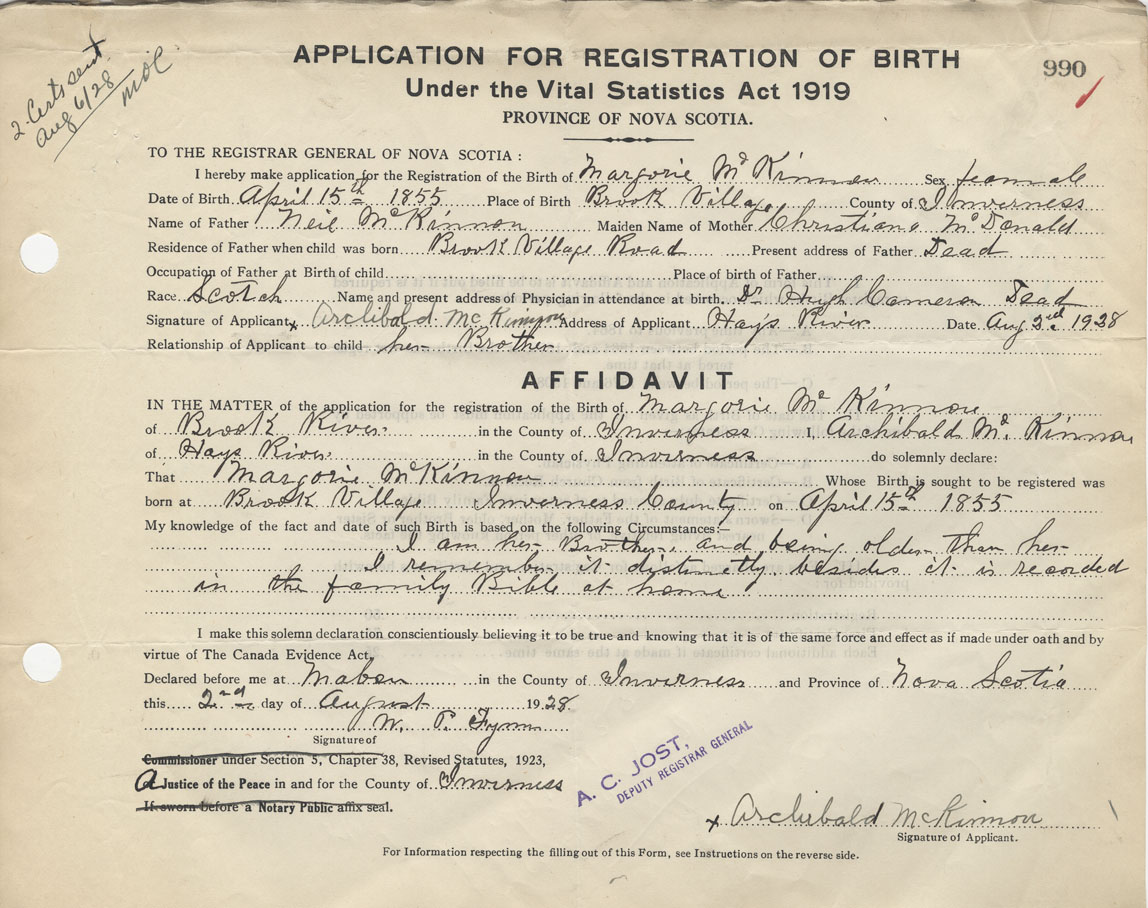 2 Certs sent
Aug 6/28
APPLICATION FOR REGISTRATION OF BIRTH
990
Under the Vital Statistics Act 1919
PROVINCE OF NOVA SCOTIA.
TO THE REGISTRAR GENERAL OF NOVA SCOTIA :
I hereby make application for the Registration of the Birth of Margorie McKinnon Sex female
Date of Birth April 15th 1855 Place of Birth Brook Village County of Inverness
Name of Father Neil McKinnon Maiden Name of Mother Christiana McDonald
Residence of Father when child was born Brook Village Road Present address of Father Dead
Occupation of Father at Birth of child Place of birth of Father
Race Scotch Name and present address of Physician in attendance at birth. Dr Hugh Cameron Dead
Signature of Applicant x Archibald McKinnon Address of Applicant Hays River Date Aug 2nd 1928
Relationship of Applicant to child her Brother
AFFIDAVIT
IN THE MATTER of the application for the registration of the Birth of Margorie McKinnon
of Brook River in the County of Inverness I, Archibald McKinnon
of Hays River in the County of Inverness do solemnly declare:
That Margorie McKinnon Whose Birth is sought to be registered was
born at Brook Village Inverness County on April 15th 1855
My knowledge of the fact and date of such Birth is based on the following Circumstances:—
I am her Brother, and being older than her
I remember it distinctly, besides it is recorded
in the family Bible at home
I make this solemn declaration conscientiously believing it to be true and knowing that it is of the same force and effect as if made under oath and by
virtue of The Canada Evidence Act.
Declared before me at Mabou in the County of Inverness and Province of Nova Scotia
this 2nd day of August 1928
W. P.
Signature of
Commissioner under Section 5, Chapter 38, Revised Statutes, 1923,
A Justice of the Peace in and for the County of Inverness
If sworn before a Notary Public affix seal.
A. C. JOST,
DEPUTY REGISTRAR GENERAL
x Archibald McKinnon
Signature of Applicant.
For Information respecting the filling out of this Form, see Instructions on the reverse side.